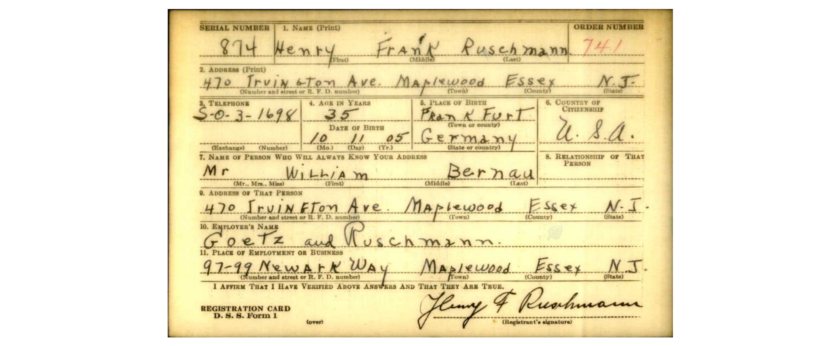 SERIAL NUMBER 1. NAME (Print) ORDER NUMBER
874 Henry Frank Ruschmann 741
(First) (Middle) (Last)
2. ADDRESS (Print)
470 IrvingTon Ave. Maplewood Essex N.J.
(Number and street or R. F. D. number) (Town) (County) (State)
3. TELEPHONE 4. AGE IN YEARS 5. PLACE OF BIRTH 6. COUNTRY OF CITIZENSHIP
S-O-3-1698 35 FrankFurt U.S.A.
(Town or county)
DATE OF BIRTH
10 11 05 Germany
(Exchange) (Number) (Mo.) (Day) (Yr.) (State or country)
7. NAME OF PERSON WHO WILL ALWAYS KNOW YOUR ADDRESS 8. RELATIONSHIP OF THAT PERSON
Mr William Bernau
(Mr., Mrs., Miss) (First) (Middle) (Last)
9. ADDRESS OF THAT PERSON
470 IrvingTon Ave. Maplewood Essex N.J.
(Number and street or R. F. D. number) (Town) (County) (State)
10. EMPLOYER'S NAME
Goetz and Ruschmann.
11. PLACE OF EMPLOYMENT OR BUSINESS
97-99 Newark Way Maplewood Essex N.J.
(Number and street or R. F. D. number) (Town) (County) (State)
I AFFIRM THAT I HAVE VERIFIED ABOVE ANSWERS AND THAT THEY ARE TRUE.
REGISTRATION CARD
D. S. S. Form 1 (over) Henry F Ruschmann
(Registrant's signature)